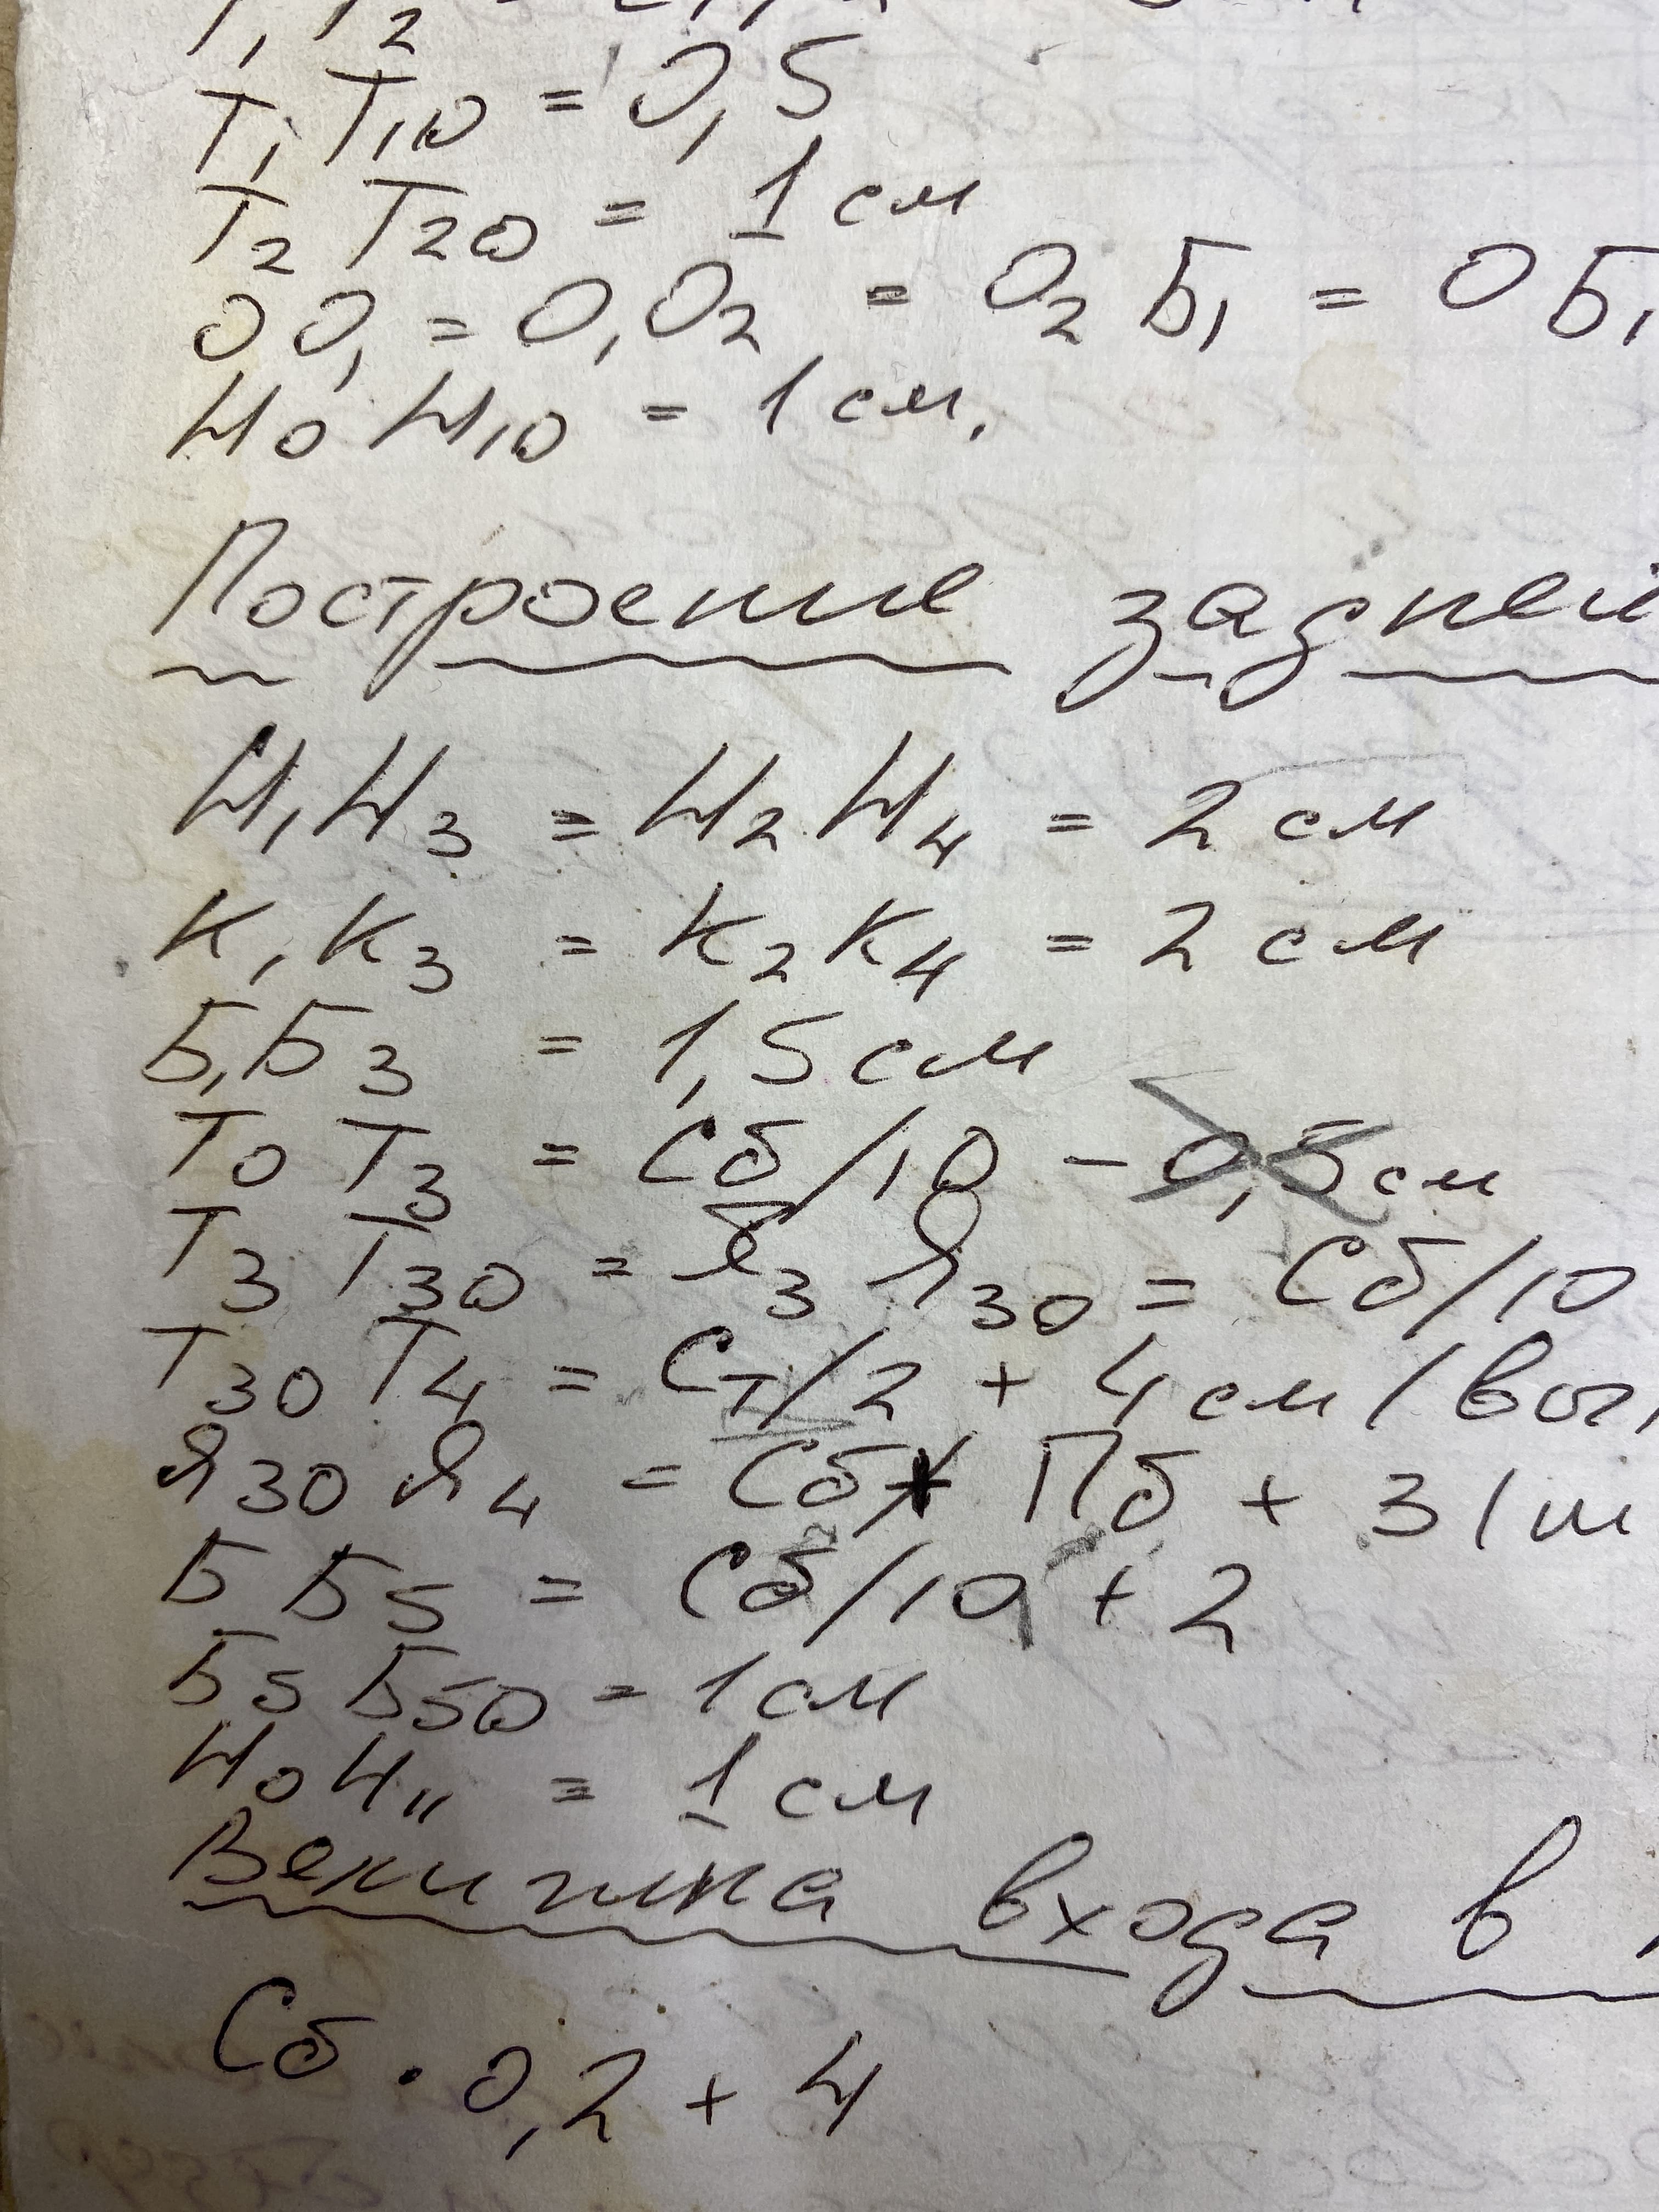 Т₁Т₂ =
Т₁Т₁₀ = 0,5
Т₂Т₂₀ = 1 см
ОО₁ = О₁О₂ = О₂Б₁ = ОБ₁
Н₀Н₁₀ = 1 см.
Построение задней
Н₁Н₃ = Н₂Н₄ = 2 см
К₁К₃ = К₂К₄ = 2 см
Б₁Б₃ = 1,5 см
Т₀Т₃ = Сб/10 - 0,5 см
Т₃Т₃₀ = Я₃Я₃₀ = Сб/10
Т₃₀Т₄ = Ст/2 + 4 см /
Я₃₀Я₄ = Сб + Пб + 3 / ш
ББ₅ = Сб/10 + 2
Б₅Б₅₀ = 1 см
Н₀Н₁₁ = 1 см
Величина входа в
Сб · 0,2 + 4